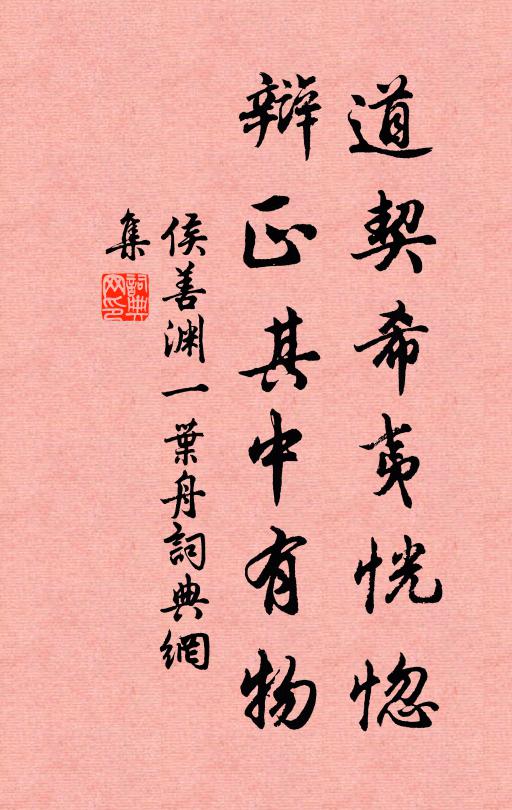 道契希夷恍惚
辯正其中有物
侯善渊一葉舟詞典網
集
詞典网印